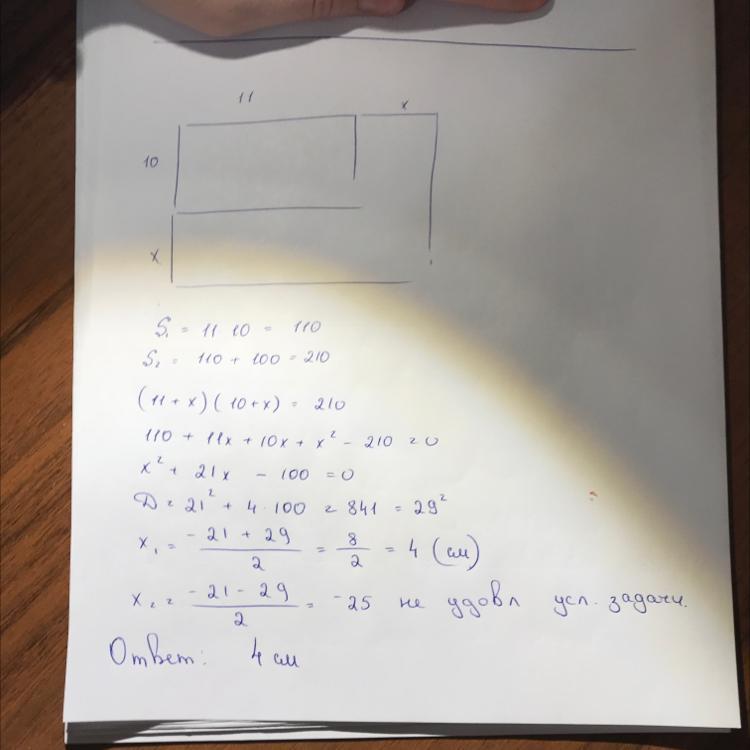 11 x
10
x
S₁ = 11 10 = 110
S₂ = 110 + 100 = 210
(11 + x)(10 + x) = 210
110 + 11x + 10x + x² - 210 = 0
x² + 21x - 100 = 0
D = 21² + 4·100 = 841 = 29²
x₁ = (-21 + 29)/2 = 8/2 = 4 (см)
x₂ = (-21 - 29)/2 = -25 не удовл усл. задачи.
Ответ: 4 см